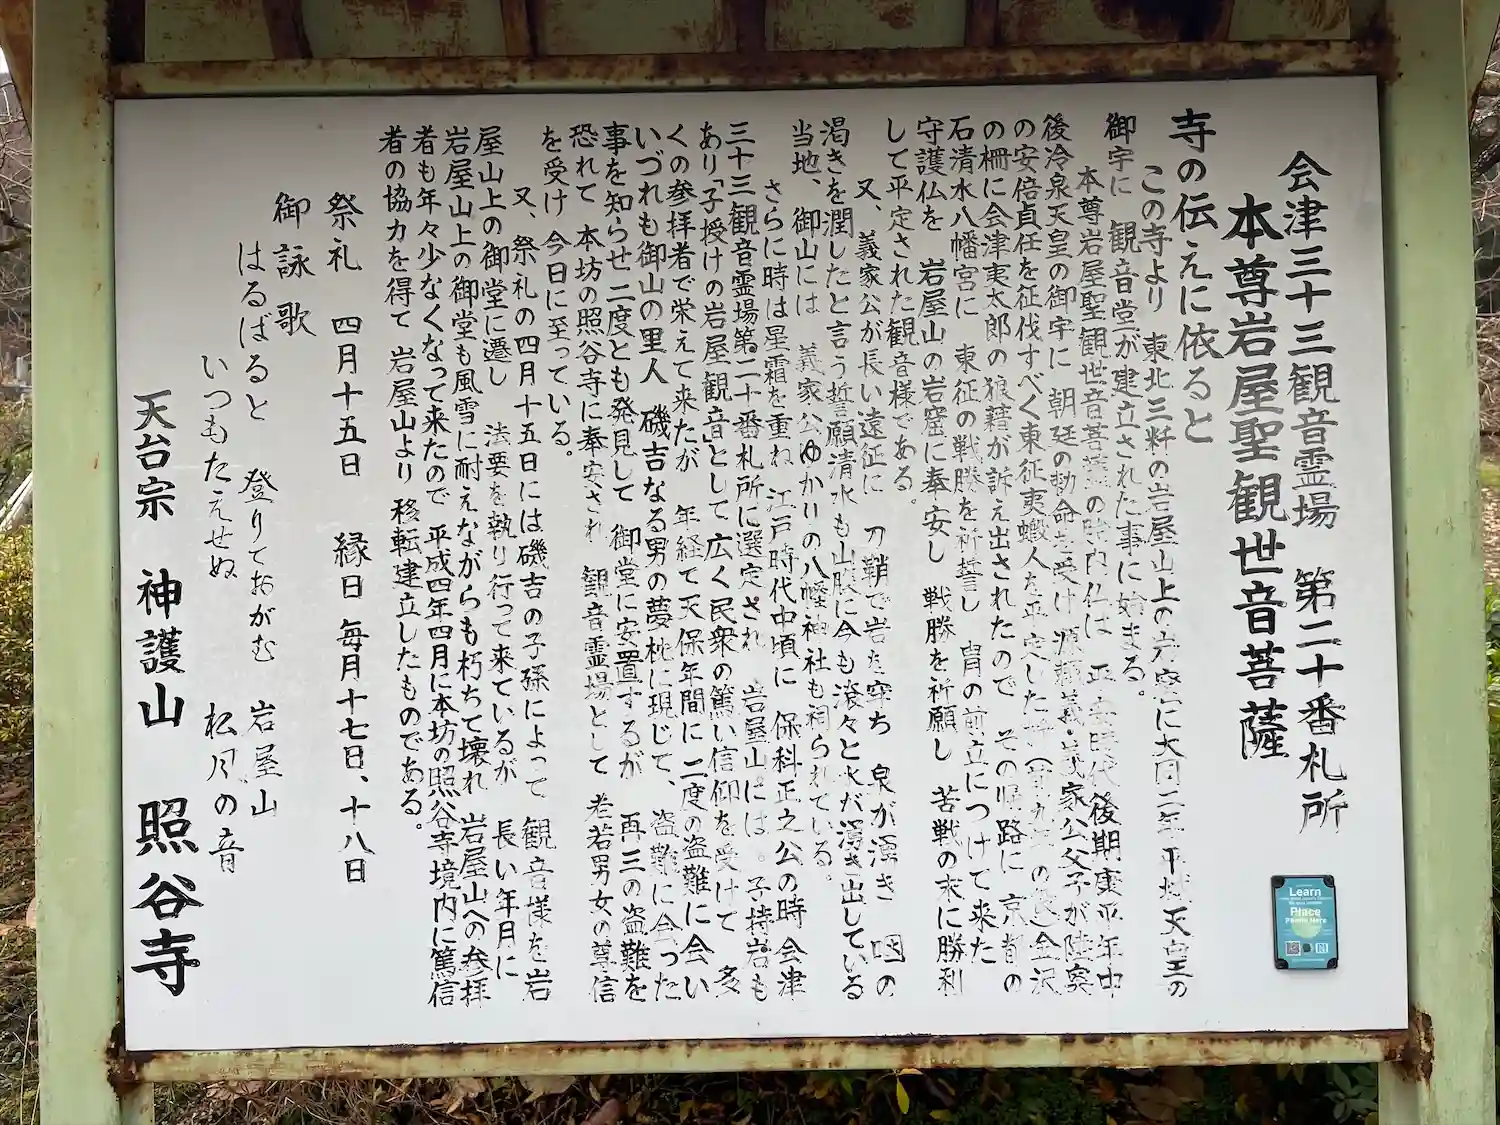 会津三十三観音霊場 第二十番札所
本尊岩屋聖観世音菩薩
寺の伝えに依ると
この寺より 東北三粁の岩屋山上の岩窟に大同二年 平城天皇の
御宇に 観音堂が建立された事に始まる。
本尊岩屋聖観世音菩薩の胎内仏は 平安時代 後期康平年中
後冷泉天皇の御宇に 朝廷の勅命を受け 源頼義・義家公父子が陸奥
の安倍貞任を征伐すべく東征夷蝦人を平定した 金沢
の柵に会津夷太郎の狼藉が訴え出されたので その帰路に 京都の
石清水八幡宮に 東征の戦勝を祈誓し 冑の前立につけて来た
守護仏を 岩屋山の岩窟に奉安し 戦勝を祈願し 苦戦の末に勝利
して平定された観音様である。
又、義家公が長い遠征に 刀鞘で岩を穿ち 泉が湧き の
渇きを潤したと言う誓願清水も山腹に今も滾々と水が湧き出している
当地、御山には 義家公ゆかりの八幡神社も祠られている。
さらに時は星霜を重ね 江戸時代中頃に 保科正之公の時 会津
三十三観音霊場第二十番札所に選定され 岩屋山には 子持岩も
あり「子授けの岩屋観音」として広く民衆の篤い信仰を受けて 多
くの参拝者で栄えて来たが 年経て天保年間に 二度の盗難に会い
いづれも御山の里人 磯吉なる男の夢枕に現じて、盗難に会った
事を知らせ二度とも発見して 御堂に安置するが 再三の盗難を
恐れて 本坊の照谷寺に奉安され 観音霊場として 老若男女の尊信
を受け 今日に至っている。
又、祭礼の四月十五日には磯吉の子孫によって 観音様を岩
屋山上の御堂に遷し 法要を執り行って来ているが 長い年月に
岩屋山上の御堂も風雪に耐えながらも朽ちて壊れ 岩屋山への参拝
者も年々少なくなって来たので 平成四年四月に本坊の照谷寺境内に篤信
者の協力を得て 岩屋山より 移転建立したものである。
祭礼 四月十五日 縁日 毎月十七日、十八日
御詠歌
はるばると 登りておがむ 岩屋山
いつもたえせぬ 松風の音
天台宗 神護山 照谷寺
Learn
Place